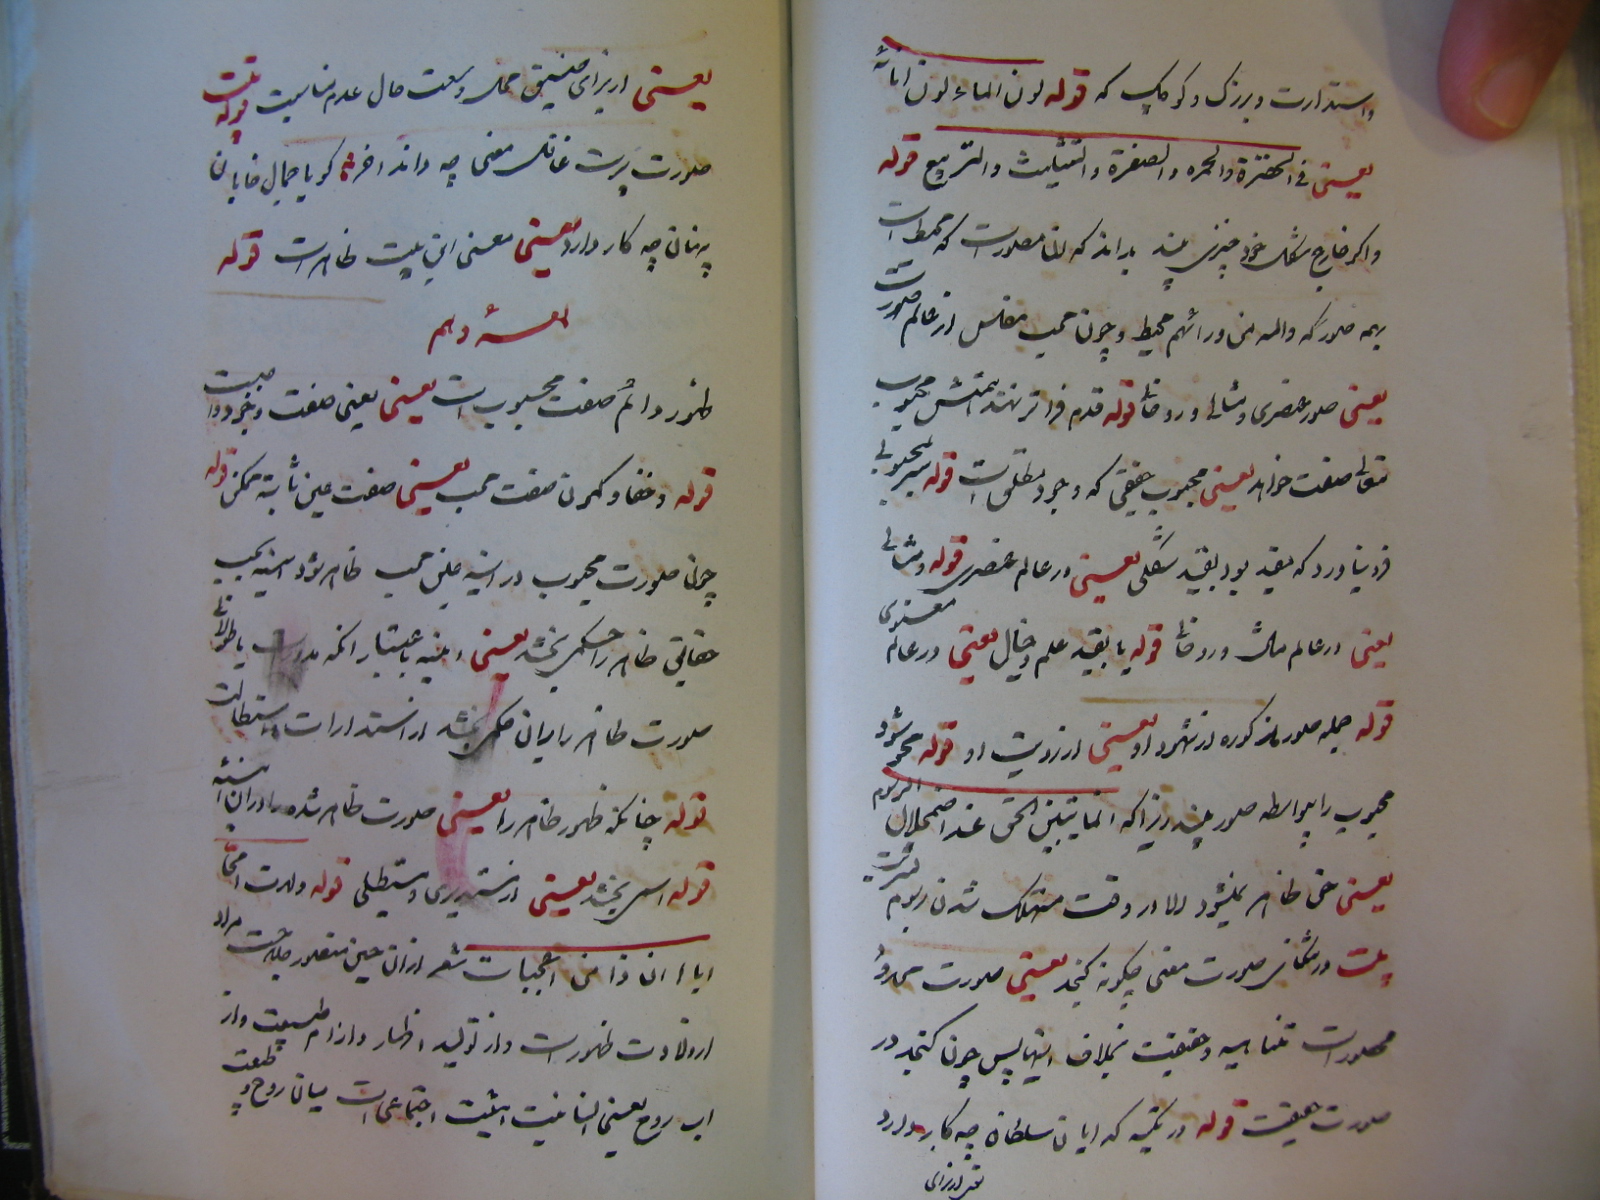 واستدارت و بزرک و کوچک که قوله لون الماء لون انائه
یعنی فی الخضرة والحمره والصفرة والتثلیث والتربیع قوله
واکر خارج شکل خود چیزی بیند بداند که ان مصورات که محیط است
بهمه صور که والله من ورائهم محیط و چون محب مفلس از عالم صورت
یعنی صور عنصری و مثالی و روحانی قوله قدم فراتر نهد همتش محبوب
متعالی صفت خواهد یعنی محبوب حقیقی که وجود مطلق است قوله سر بمحبوبی
فرو نیاورد که مقید بود بقید شکلی یعنی در عالم عنصری قوله و مثالی
یعنی در عالم مثال و روحانی قوله یا بقید علم و خیال یعنی در عالم معنوی
قوله جمله صور مذکوره از شهود او یعنی از رویت او قوله محو شود
محبوب را بیواسطه صور بیند زیرا که انما یتبین الحق عند اضمحلال الرسوم
یعنی حق ظاهر نمیشود الا در وقت مستهلک شدن رسوم بشریت
بیت در تنکنای صورت معنی چکونه کنجد یعنی صورت محدود
محصور است متناهیه و حقیقت بخلاف اینها پس چون کنجد در
صورت حقیقت قوله در بتکده که ایان سلطان چه کار دارد
یعنی از برای
یعنی از برای ضیق محل وسعت حال عدم مناسبت قوله بیت
صورت پرست غافل معنی چه داند اخر کو با جمال جانان
پنهان چه کار دارد یعنی معنی این بیت ظاهر است قوله
لمعهٔ دهم
ظهور دائم صفت محبوب است یعنی یعنی صفت وجود واجبیت
قوله و خفا و کمون صفت محب یعنی صفت عین ثابته ممکن قوله
چون صورت محبوب در اینه عین محب ظاهر شود اینه بحسب
حقایق ظاهر را حکمی بخشد یعنی اینه باعتبار انکه مدور است یا طولانی
صورت ظاهر را بدان حکمی بخشد از استدارات و استطالت
قوله چنانکه ظهور ظاهر را یعنی صورت ظاهر شده را در ان اینه
قوله اسمی بخشد یعنی از مستدیری و مستطیلی قوله ولدت امی
اباها ان ذا من اعجبات شعر از ان حسین منصور حلاج است مراد
از ولادت ظهور است و از تولید اظهار و از ام طبیعت و از
اب روح یعنی انسانیت هیئت اجتماعی است میان روح و طبیعت